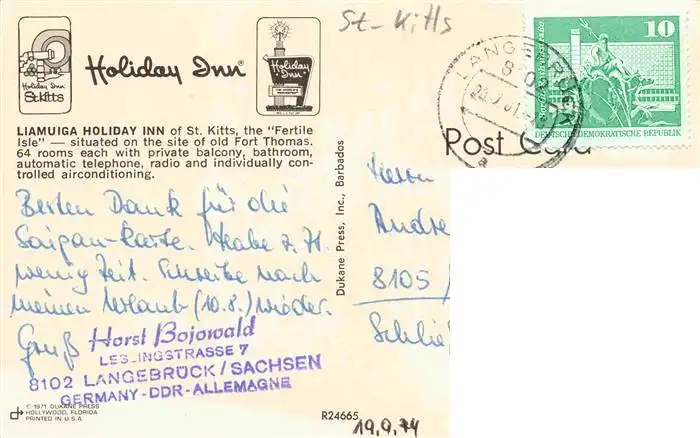 St. Kitts
Holiday Inn
St.Kitts
Holiday Inn®
Holiday Inn
10
DEUTSCHE DEMOKRATISCHE REPUBLIK
LANGEBRÜCK
Post Card
LIAMUIGA HOLIDAY INN of St. Kitts, the "Fertile
Isle" — situated on the site of old Fort Thomas.
64 rooms each with private balcony, bathroom,
automatic telephone, radio and individually con-
trolled airconditioning.
Besten Dank für die
Saigan-Karte. Habe z. Zt.
wenig Zeit. Schreibe nach
meinen Urlaub (10.8.) wieder.
Gruß
Horst Bojowald
LESSINGSTRASSE 7
8102 LANGEBRÜCK/SACHSEN
GERMANY-DDR-ALLEMAGNE
Dukane Press, Inc., Barbados
Herrn
Andre
8105/
Schlie
© 1971 DUKANE PRESS
HOLLYWOOD, FLORIDA
PRINTED IN U.S.A.
R24665
19.9.74